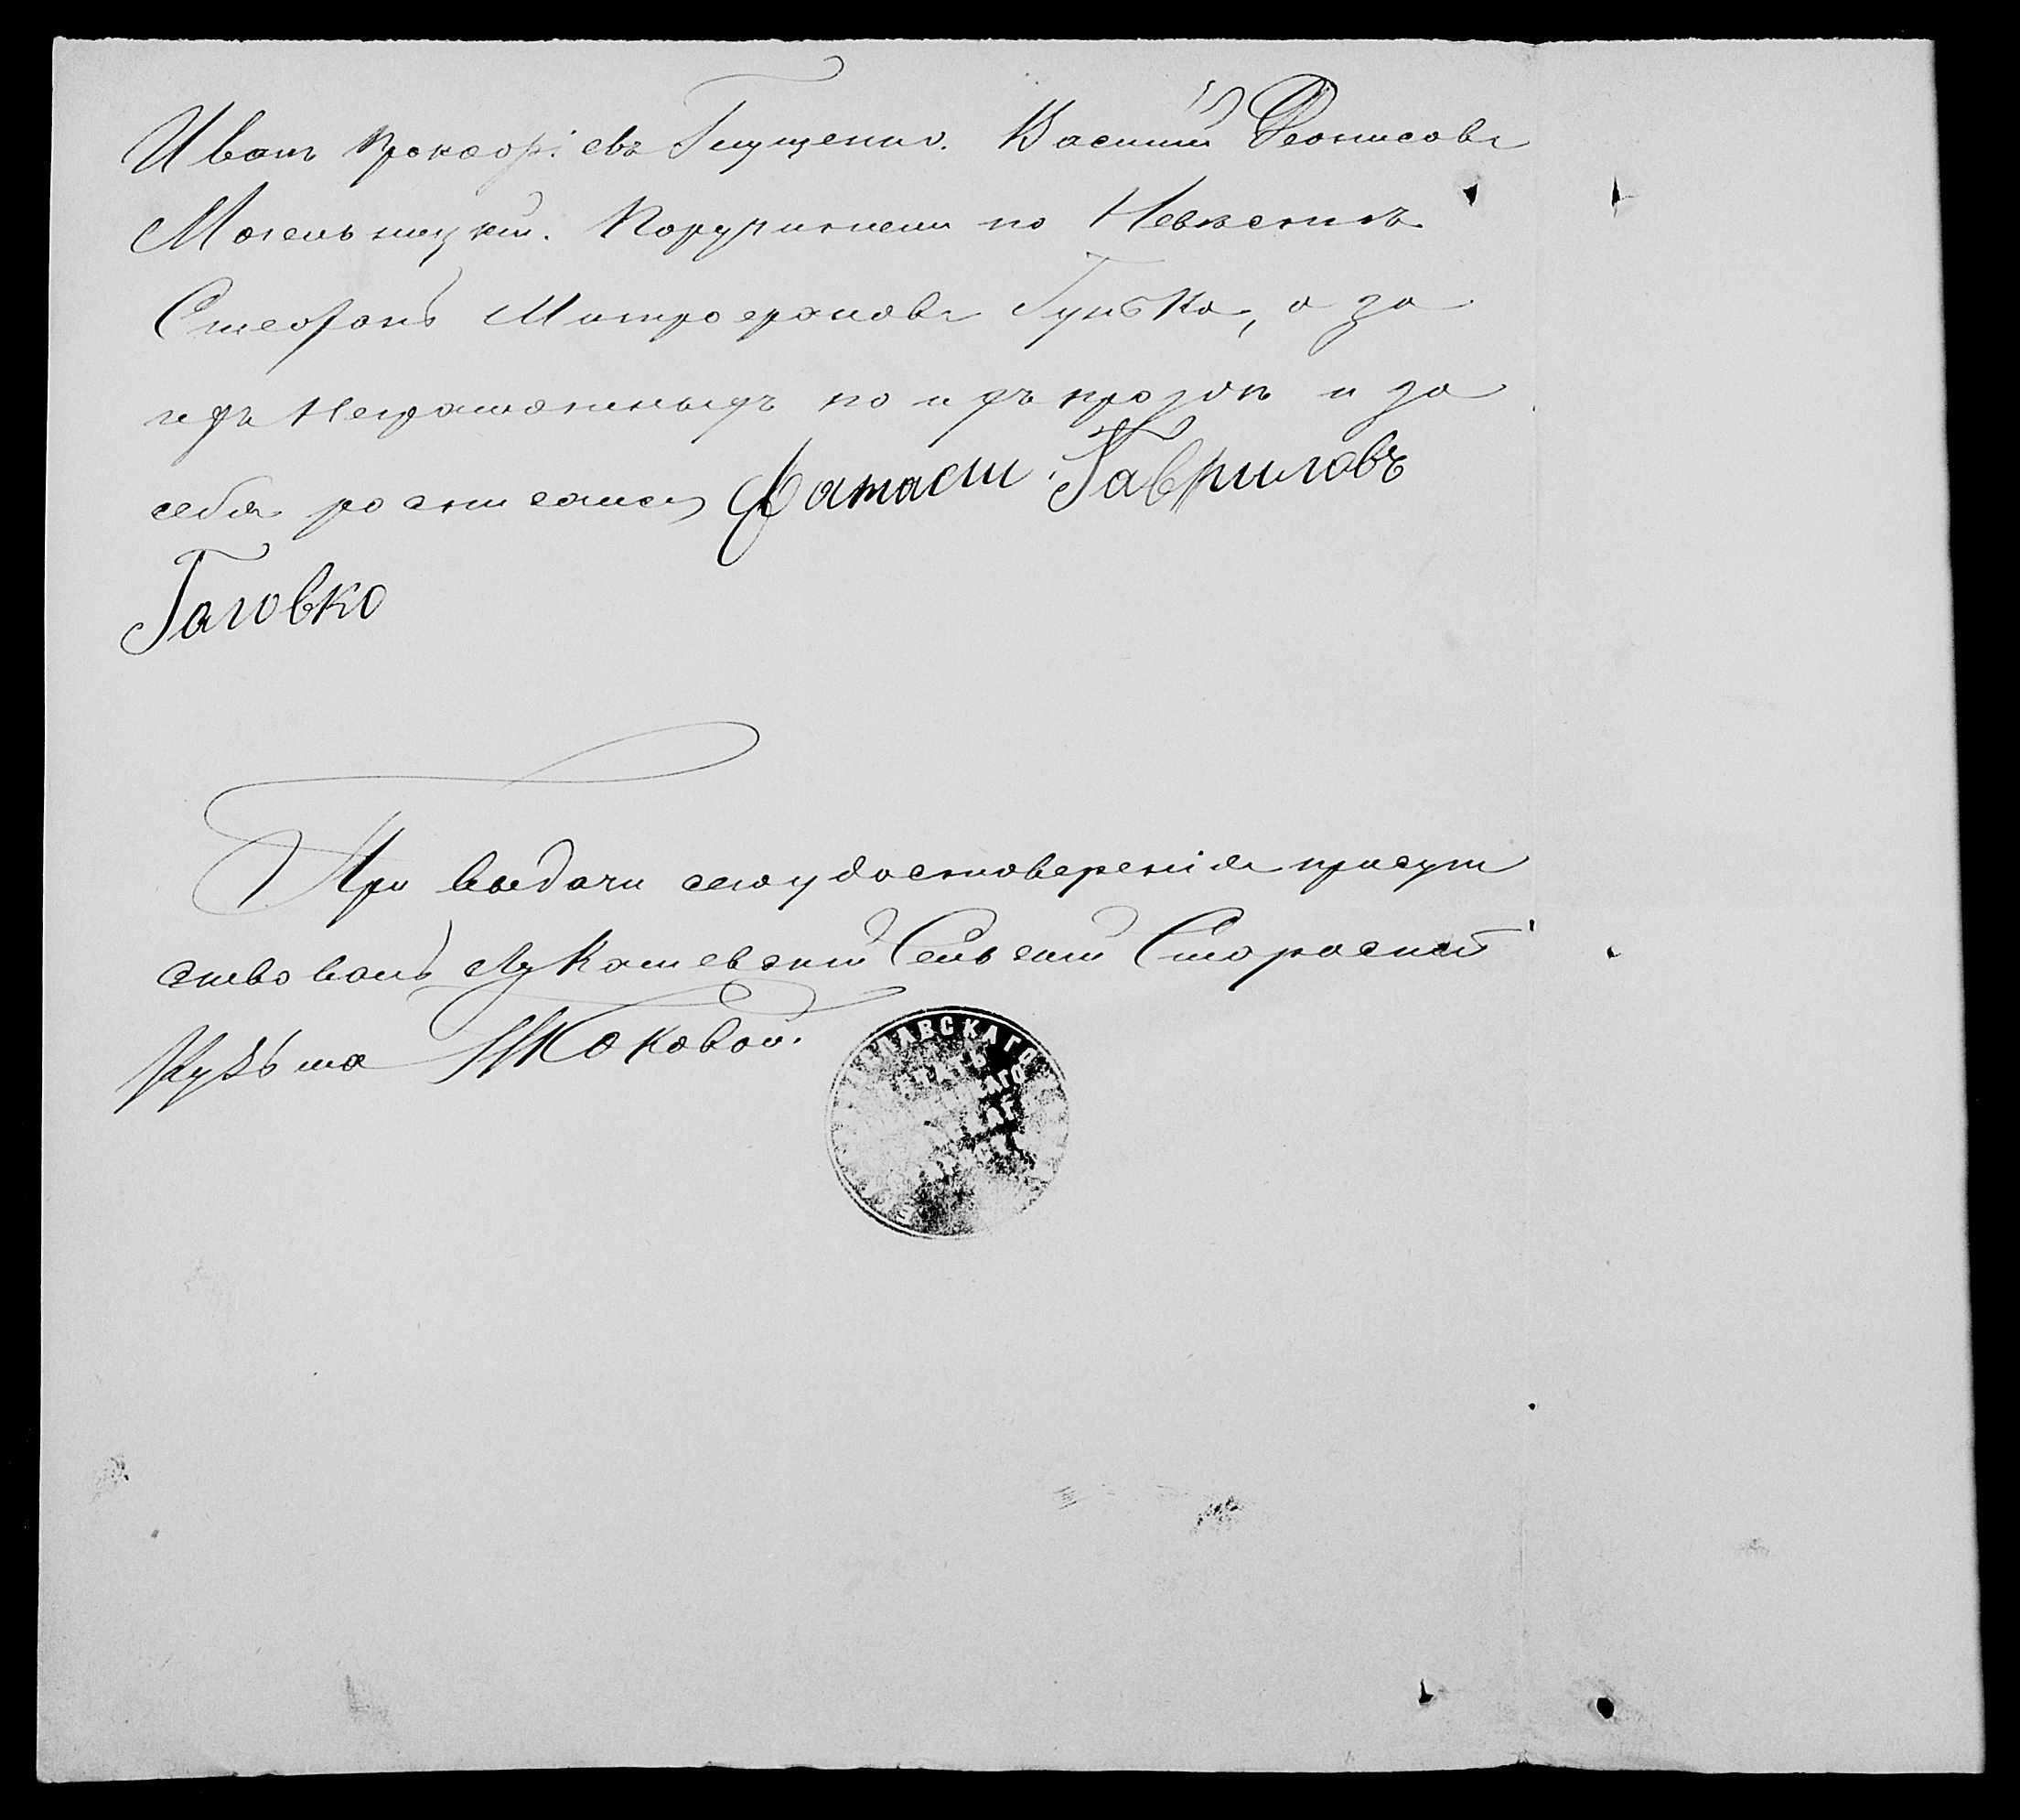 Иванъ Прокофіевъ Гнущенко. Василий Деонисовъ
Могельницкій. Поручители по Невѣстѣ
Стефанъ Митрофановъ Гунька, а за
ихъ неграмотныхъ по ихъ прозбѣ и за
себя росписался Фатасии Гавриловъ
Галовко
При выдачи сего удостоверенія присут
ствовалъ Лукашевский Сельский Староста
Кузьма Токовой.
СЛАВСКАГО